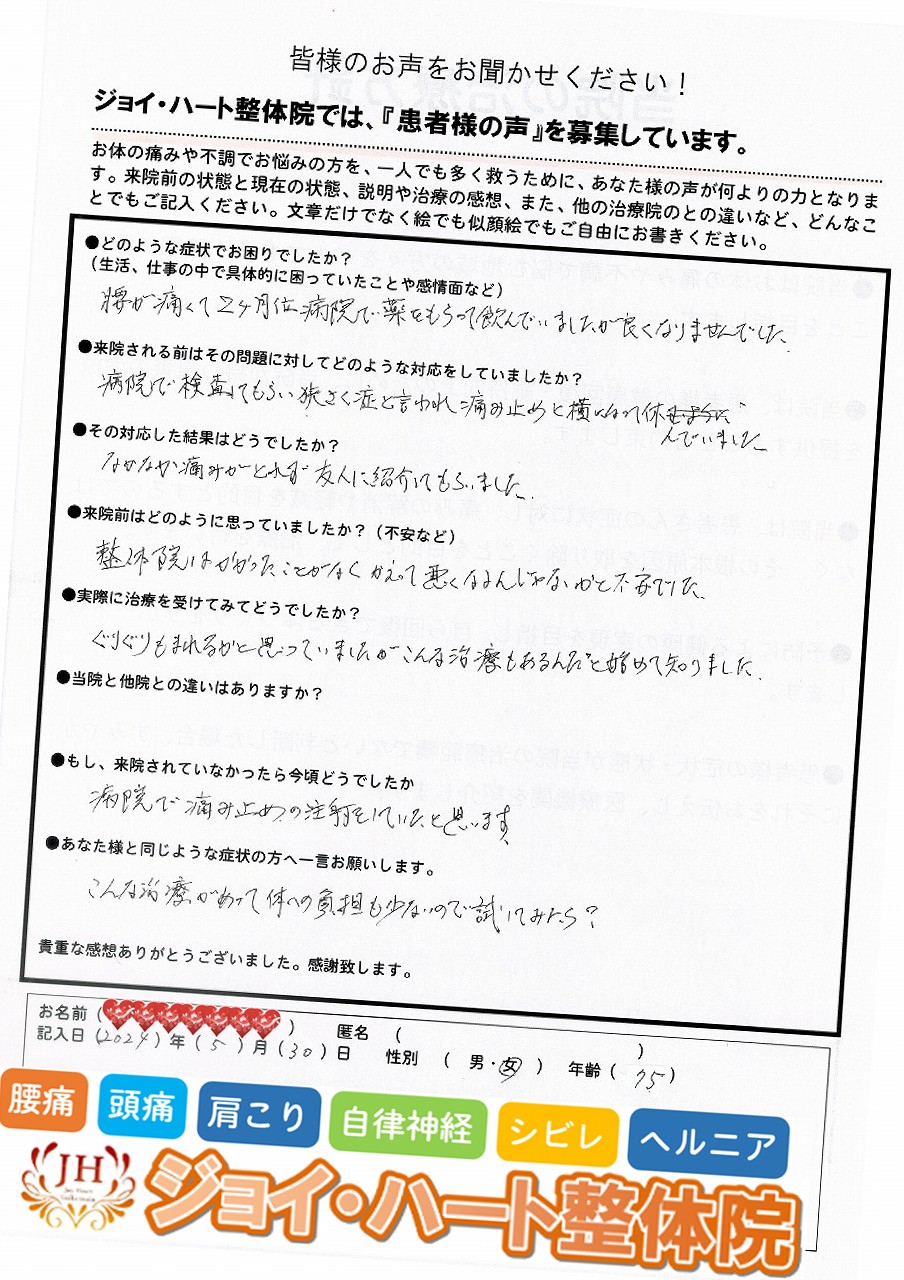 皆様のお声をお聞かせください！
ジョイ・ハート整体院では、『患者様の声』を募集しています。
お体の痛みや不調でお悩みの方を、一人でも多く救うために、あなた様の声が何よりの力となりま
す。来院前の状態と現在の状態、説明や治療の感想、また、他の治療院のとの違いなど、どんなこ
とでもご記入ください。文章だけでなく絵でも似顔絵でもご自由にお書きください。
●どのような症状でお困りでしたか？
（生活、仕事の中で具体的に困っていたことや感情面など）
腰が痛くて2ヶ月位病院で薬をもらって飲んでいましたが良くなりませんでした。
●来院される前はその問題に対してどのような対応をしていましたか？
病院で検査してもらい狭さく症と言われ痛み止めと横になって休
んでいました
●その対応した結果はどうでしたか？
なかなか痛みがとれず友人に紹介してもらいました。
●来院前はどのように思っていましたか？（不安など）
整体院はかかったことがなくかえって悪くなるんじゃないかと不安でした。
●実際に治療を受けてみてどうでしたか？
ぐりぐりもまれるかと思っていましたがこんな治療もあるんだと始めて知りました。
●当院と他院との違いはありますか？
●もし、来院されていなかったら今頃どうでしたか
病院で痛み止めの注射をしていたと思います。
●あなた様と同じような症状の方へ一言お願いします。
こんな治療があって体への負担も少ないので試してみたら？
貴重な感想ありがとうございました。感謝致します。
お名前（ ） 匿名（ ）
記入日（2024）年（5）月（30）日 性別（男・女） 年齢（75）
腰痛 頭痛 肩こり 自律神経 シビレ ヘルニア
JH
ジョイ・ハート整体院